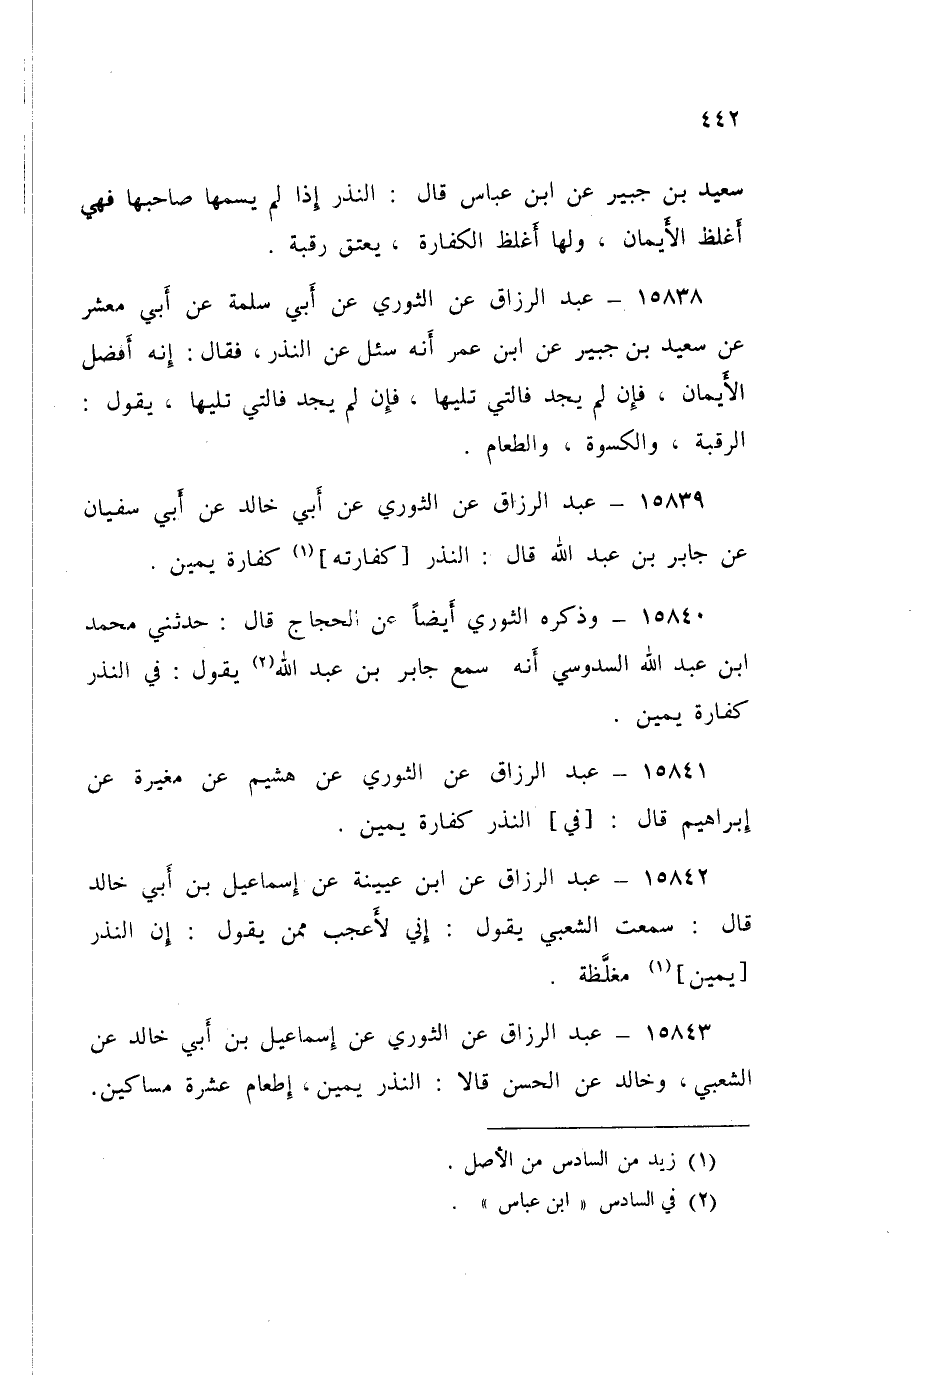 ٤٤٢
سعيد بن جبير عن ابن عباس قال : النذر إذا لم يسمها صاحبها فهي
أغلظ الأَيمان ، ولها أغلظ الكفارة ، يعتق رقبة .
١٥٨٣٨ – عبد الرزاق عن الثوري عن أَبي سلمة عن أَبي معشر
عن سعيد بن جبير عن ابن عمر أَنه سئل عن النذر ، فقال : إِنه أَفضل
الأَيمان ، فإن لم يجد فالتي تليها ، فإن لم يجد فالتي تليها ، يقول :
الرقبة ، والكسوة ، والطعام .
١٥٨٣٩ – عبد الرزاق عن الثوري عن أَبي خالد عن أَبي سفيان
عن جابر بن عبد الله قال : النذر [كفارته](١) كفارة يمين .
١٥٨٤٠ – وذكره الثوري أَيضاً عن الحجاج قال : حدثني محمد
ابن عبد الله السدوسي أَنه سمع جابر بن عبد الله(٢) يقول : في النذر
كفارة يمين .
١٥٨٤١ – عبد الرزاق عن الثوري عن هشيم عن مغيرة عن
إبراهيم قال : [في] النذر كفارة يمين .
١٥٨٤٢ – عبد الرزاق عن ابن عيينة عن إسماعيل بن أَبي خالد
قال : سمعت الشعبي يقول : إني لأَعجب ممن يقول : إن النذر
[يمين](١) مغلَّظة .
١٥٨٤٣ – عبد الرزاق عن الثوري عن إسماعيل بن أَبي خالد عن
الشعبي ، وخالد عن الحسن قالا : النذر يمين ، إطعام عشرة مساكين .
(١) زيد من السادس من الأصل .
(٢) في السادس « ابن عباس » .